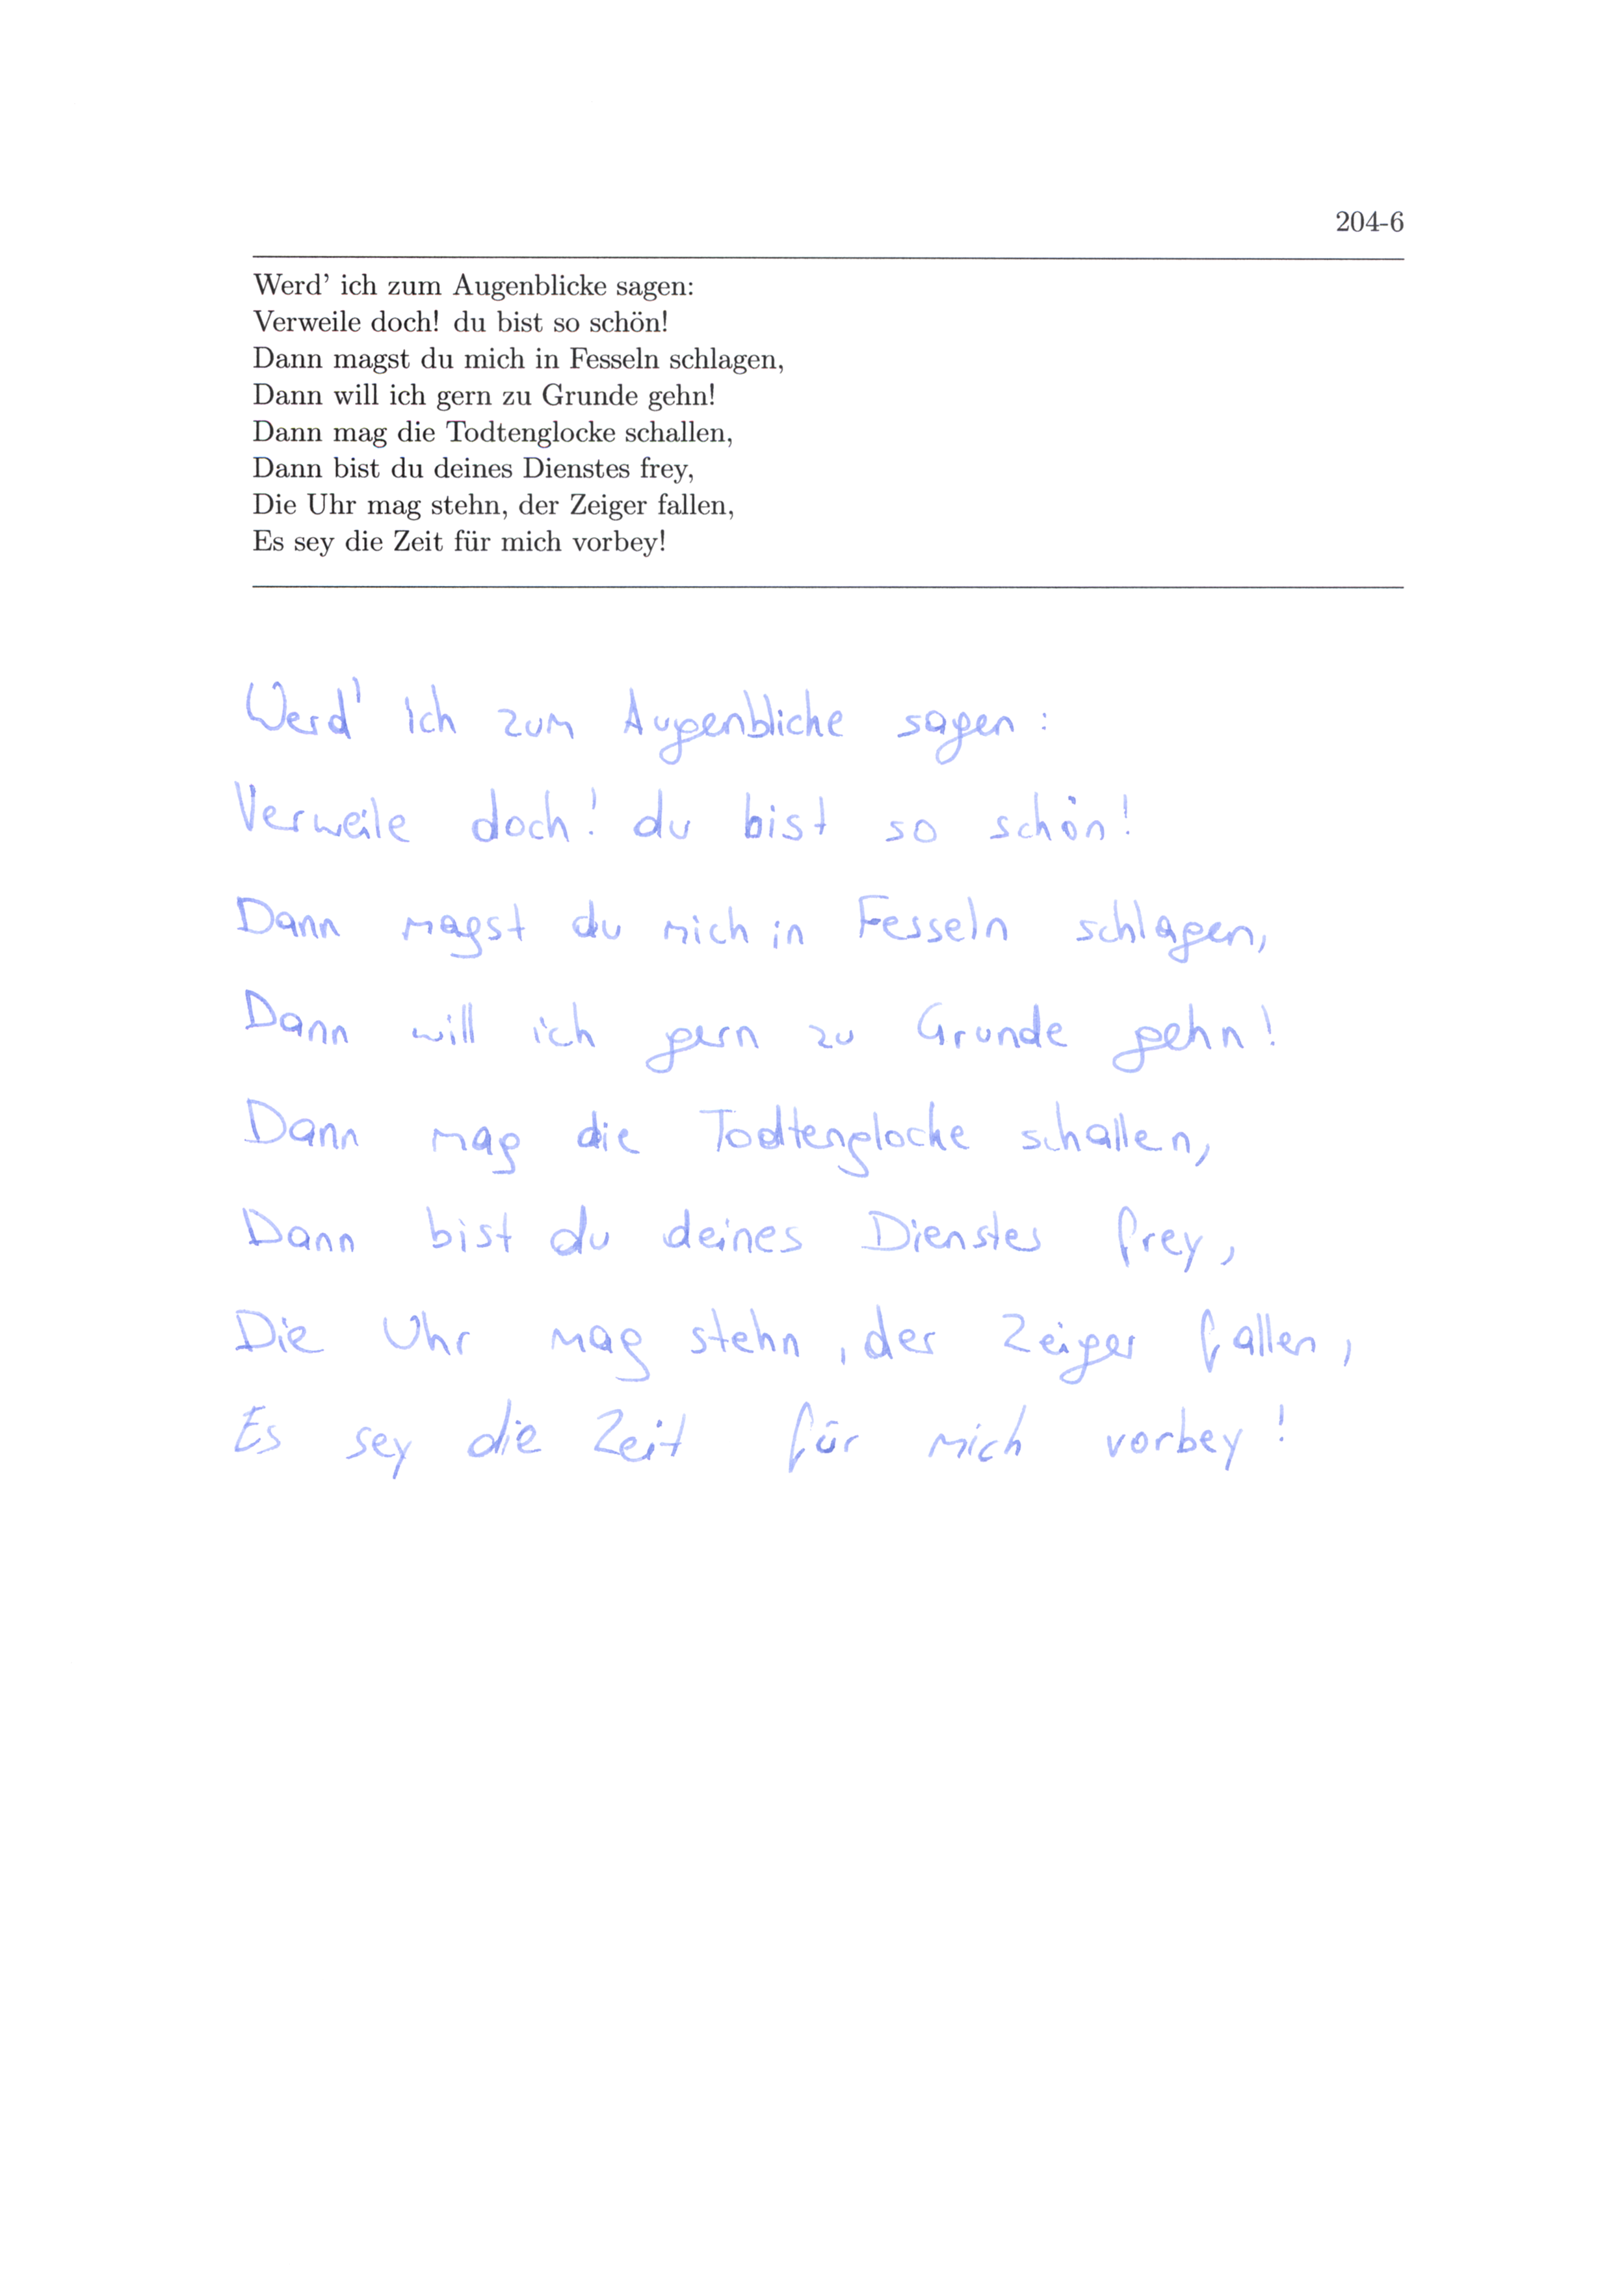 204-6
Werd' ich zum Augenblicke sagen:
Verweile doch! du bist so schön!
Dann magst du mich in Fesseln schlagen,
Dann will ich gern zu Grunde gehn!
Dann mag die Todtenglocke schallen,
Dann bist du deines Dienstes frey,
Die Uhr mag stehn, der Zeiger fallen,
Es sey die Zeit für mich vorbey!
Werd' ich zum Augenblicke sagen:
Verweile doch! du bist so schön!
Dann magst du mich in Fesseln schlagen,
Dann will ich gern zu Grunde gehn!
Dann mag die Todtenglocke schallen,
Dann bist du deines Dienstes frey,
Die Uhr mag stehn, der Zeiger fallen,
Es sey die Zeit für mich vorbey!